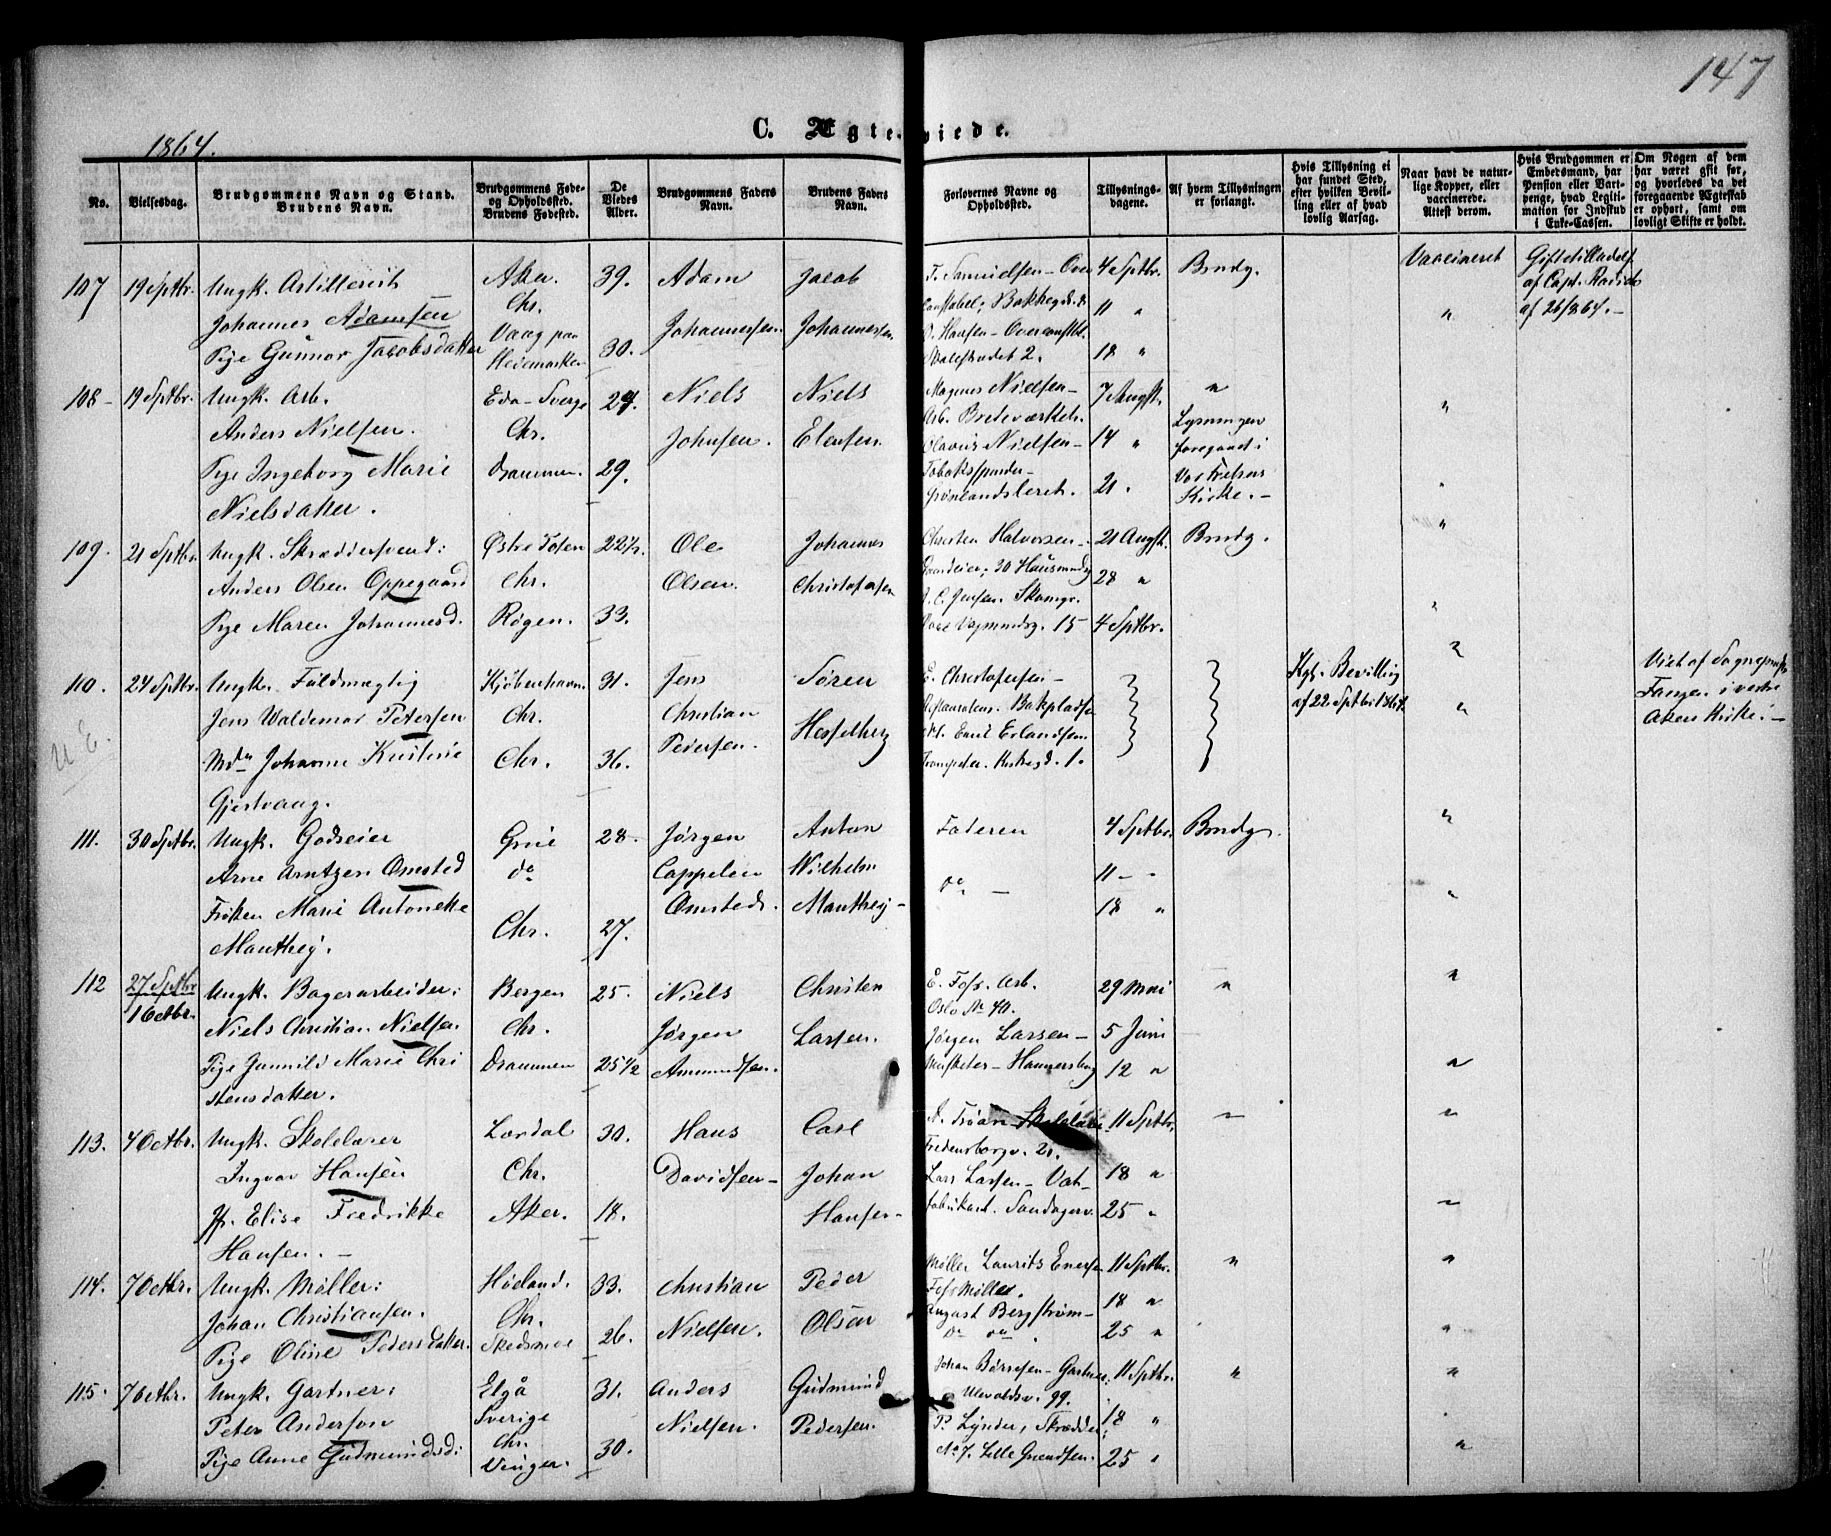 147
1864.
C. Ægteviede.
No.
Vielsesdag.
Brudgommens Navn og Stand.
Brudens Navn.
Brudgommens Føde-
og Opholdssted.
Brudens Fødested.
De
Viedes
Alder.
Brudgommens Faders
Navn.
Brudens Faders
Navn.
Forlovernes Navne og
Opholdssted.
Tillysnings-
dagene.
Af hvem Tillysningen
er forlangt.
Hvis Tillysning ei
har fundet Sted,
efter hvilken Bevil-
ling eller af hvad
lovlig Aarsag.
Naar havt de natur-
lige Kopper, eller
vaccinerede.
Attest derom.
Hvis Brudgommen er
Embedsmand, har
Pension eller Vart-
penge, hvad Legiti-
mation for Indskud
i Enke-Cassen.
Om Nogen af dem
har været gift før,
og hvorledes da det
foregaaende Ægteskab
er ophørt, samt om
lovligt Skifte er holdt.
107 19 Sptbr. Ungk. Artillerist Aker. 39. Adam Jacob T. Samuelsen – Over 4 Sptbr. Brudg. Vaccineret Giftetilladels
Johannes Adamsen Chr. Johannessen. Johannessen. Constabel; Bakkegd. 8 11 " " af Capt.
Pige Gunnor Jacobsdatter Vaag paa Hedemarken 30. O. Hansen – Overconstbl. 18 " af 26/8 64. –
108 – 19 Sptbr. Ungk. Arb. Eda – Sverge 27. Niels Niels Magnus Nielsen – 7 Augst. "
Anders Nielsen. Chr. Johnsen. Elensen. Arb. Bredeværket. Lysningen
Pige Ingeborg Marie Drammen. 29. Olavus Nielsen – 14 " foregaaet i
Nielsdatter. Tobakspinder – Grønlandsleret. 21 " Vor Frelsers Kirke. –
109. 21 Sptbr. Ungk. Skræddersvend: Østre Toten 22½. Ole Johannes Christen Halvorsen – 21 Augst. Brudg.
Anders Olsen Oppegaard Chr. Olsen. Christofersen 30 Hausmandsg 28 "
Pige Maren Johannesd. Røgen. 33. J. C. Jensen. Skomgr. 15 4 Sptbr.
110. 24 Sptbr. Ungk. Fuldmægtig Kjöbenhavn. 31. Jens Sören E. Christofersen – Kgl. Bevilling Viet af Sognepræst
Jens Waldemar Petersen Chr. Christian Hesselberg Restaurateur. Bakpladsen af 22 Sptbr 1864. " Fangen i vestre
Mdm Johanne Kristine Chr. 36. Pedersen. Emil Erlandsen Aker Kirke: –
Gjestvang. Kirkegd. 1.
111. 30 Sptbr. Ungk. Godseier Grue 28. Jørgen Anton Faderen 4 Sptbr. Brudg.
Arne Arntzen Omsted do Cappelen Wilhelm do – 11 – "
Frøken Marie Antonette Chr. 27. Omsted. Manthey – 18 "
Manthey.
112 27 Sptbr 1 Octbr. Ungk. Bagerarbeider: Bergen 25. Niels Christen E. Foss. Arb. 29 Mai "
Niels Christian Nielsen Chr. Jørgen Larsen. Oslo No 40. Jørgen Larsen – 5 Juni
Pige Gunnild Marie Chri Drammen 25½ Amundsen. Musketer – Hammersborg 12 "
stensdatter.
113. 4 Octbr. Ungk. Skolelærer Lærdal 30. Hans Carl Skolelærer 11 Sptbr. "
Ingvar Hansen Chr. Davidsen – Johan Fredensborgv. 21. 18 "
Jfr. Elise Fredrikke Aker. 18. Hansen – Lars Larsen – Vat-fabrikant. Sandagerv. 25 "
Hansen. –
114. 7 Octbr. Ungk. Møller: Høland. 33. Christian Peder Møller Laurits Enersen 11 Sptbr. "
Johan Christiansen. Chr. Nielsen. Olsen Foss Møller. 18 "
Pige Oline Pedersdatter. Skedsmoe 26. August Bergstrøm – do do. 25 "
115. 7 Octbr. Ungk. Gartner: Elgå 31. Anders Gudmund Johan Börresen – Gartner. 11 Sptbr. "
Peter Anderson Sverige Nielsen. Pedersen. Ulevoldsv. 99. 18 "
Pige Anne Gudmundsd: Chr. Vinger. 30. P. Lynder, Skrædder, No 7. Lille Grændsen. 25 "
U. E.